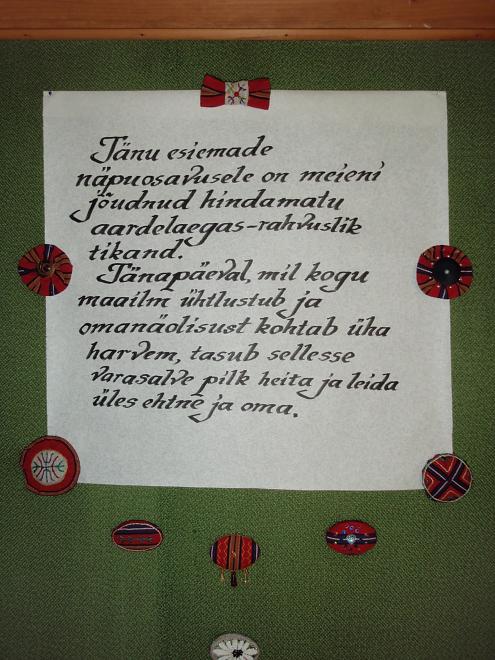 Tänu esiemade
näpuosavusele on meieni
jõudnud hindamatu
aardelaegas-rahvuslik
tikand.
Tänapäeval, mil kogu
maailm ühtlustub ja
omanäolisust kohtab üha
harvem, tasub sellesse
varasalve pilk heita ja leida
üles ehtne ja oma.